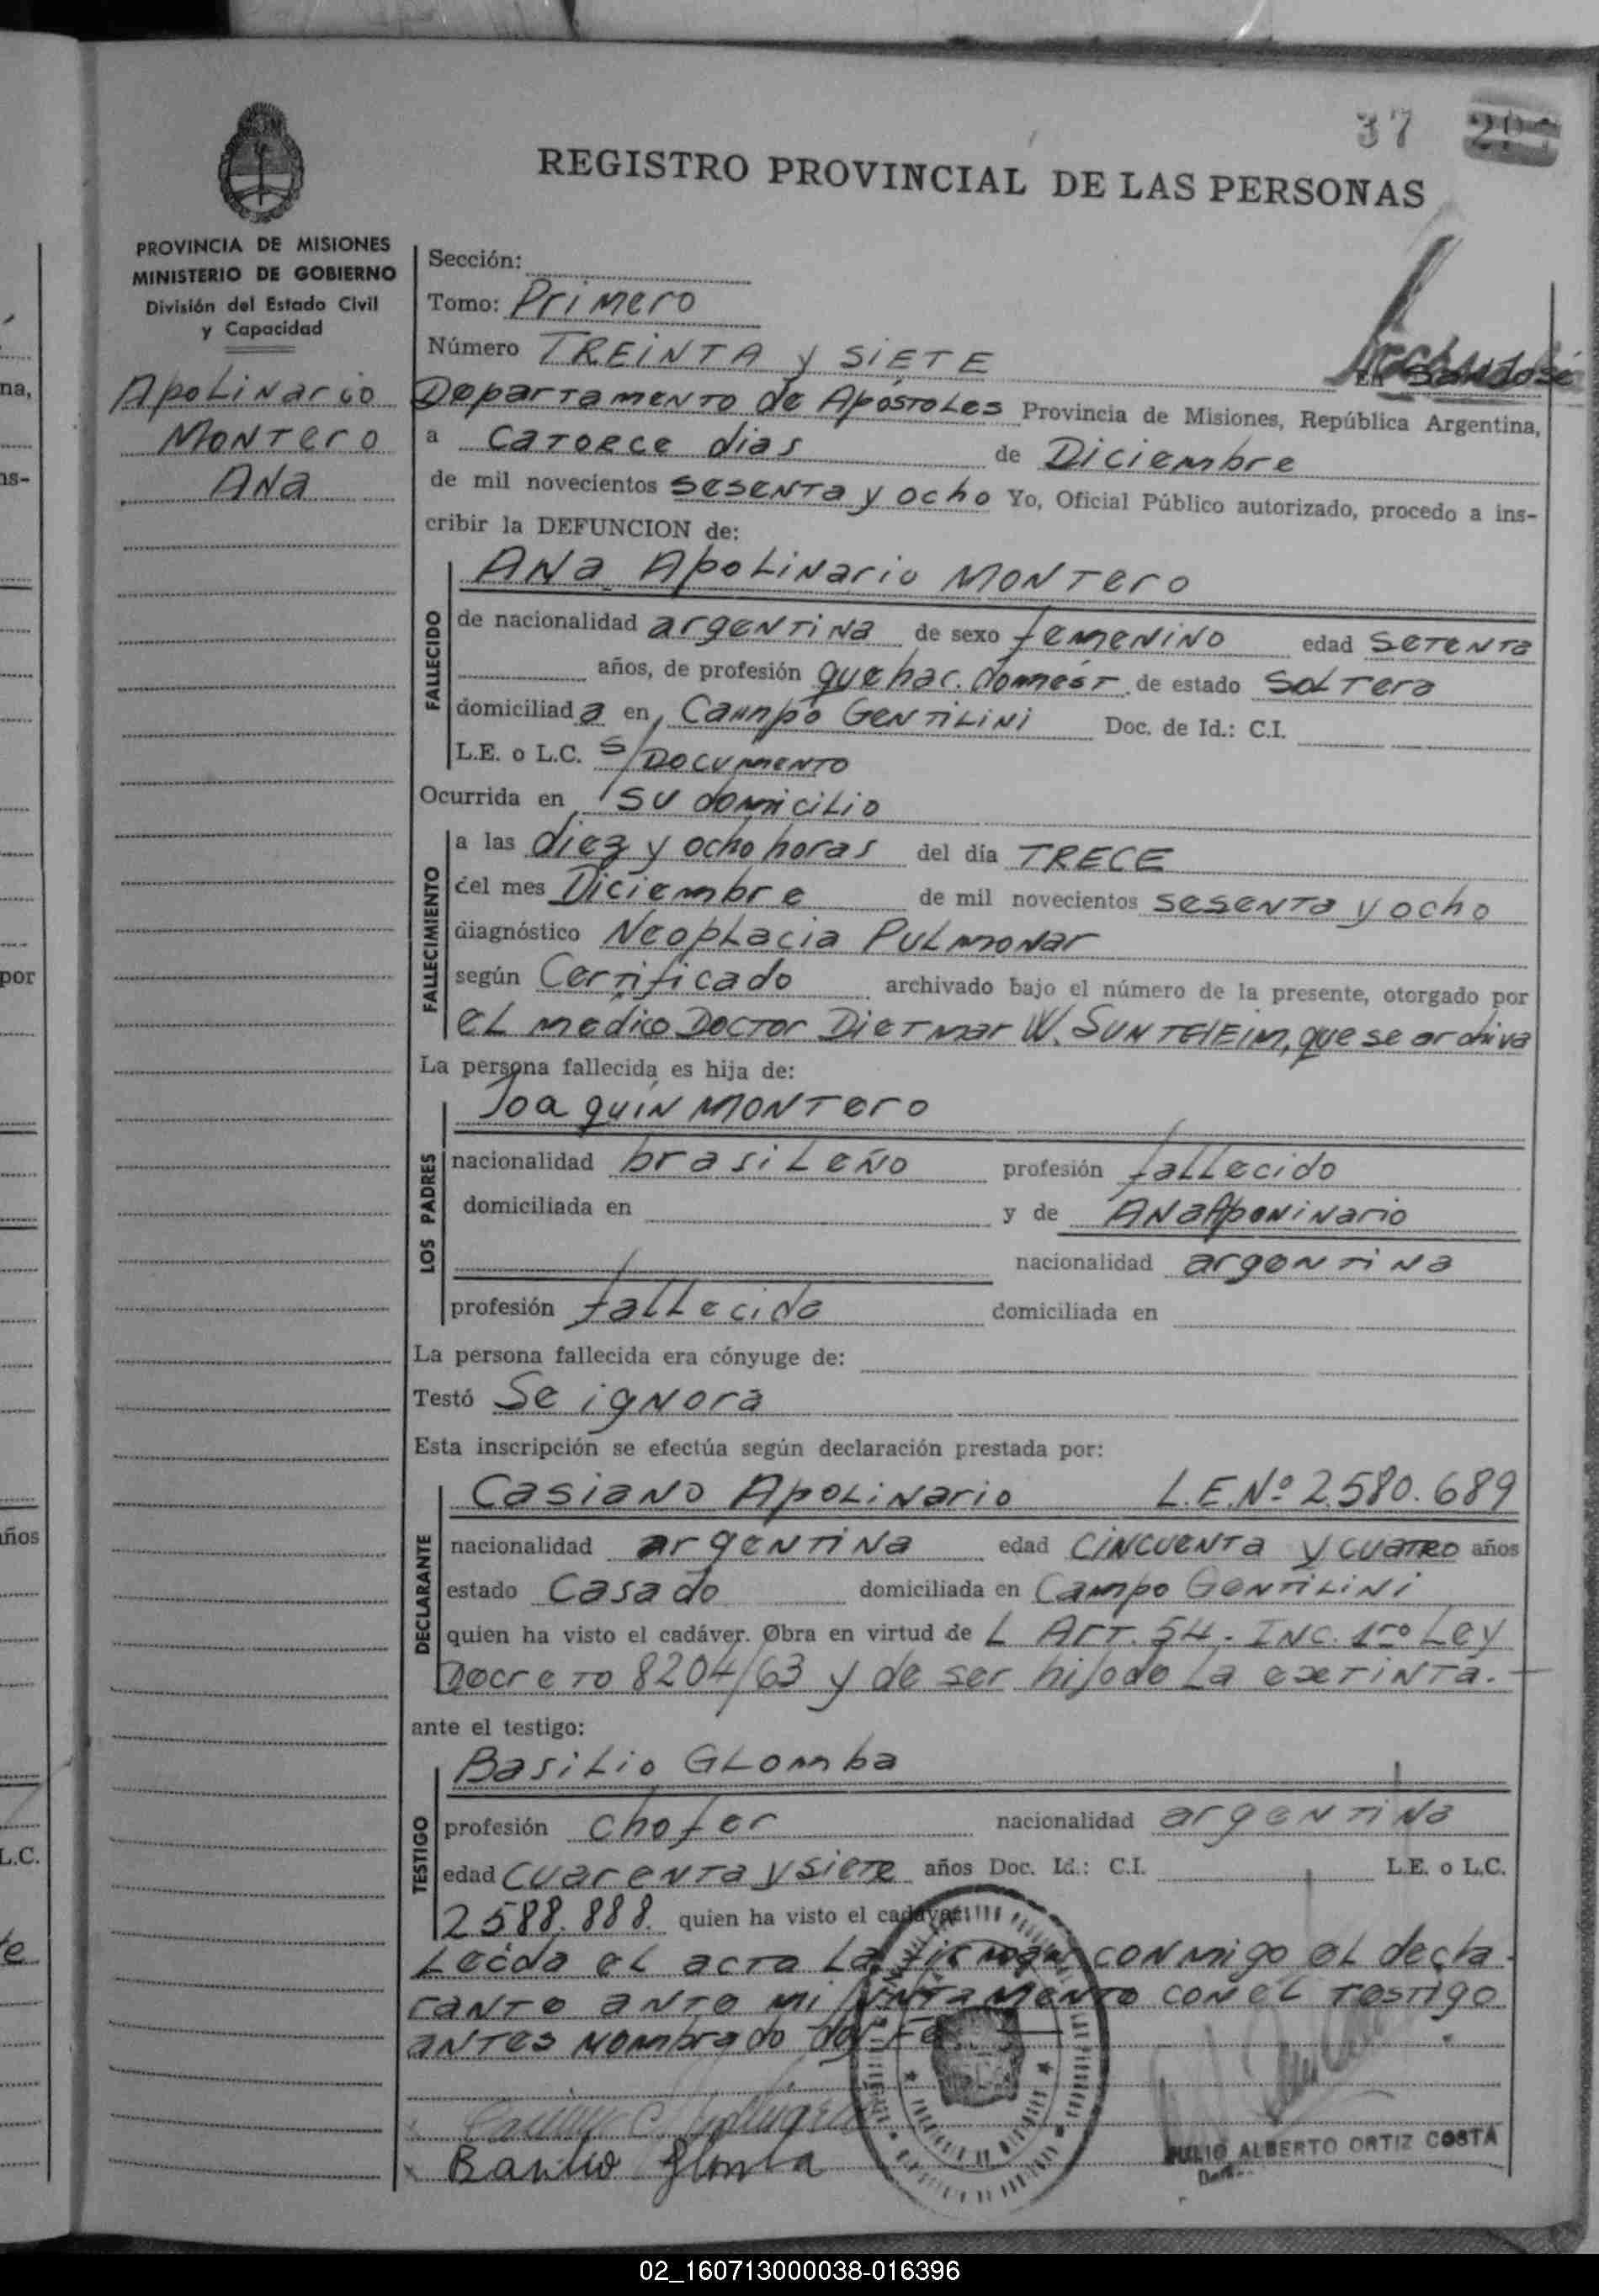 37
REGISTRO PROVINCIAL DE LAS PERSONAS
PROVINCIA DE MISIONES
MINISTERIO DE GOBIERNO
División del Estado Civil
y Capacidad
Apolinario
Montero
Ana
Sección:
Tomo: Primero
Número TREINTA y SIETE
En San José
Departamento de Apóstoles Provincia de Misiones, República Argentina,
a catorce dias de Diciembre
de mil novecientos sesenta y ocho Yo, Oficial Público autorizado, procedo a ins-
cribir la DEFUNCION de:
Ana Apolinario Montero
FALLECIDO
de nacionalidad argentina de sexo femenino edad setenta
años, de profesión quehac. domést. de estado Soltera
domiciliad a en Campo Gentilini Doc. de Id.: C.I.
L.E. o L.C. S/Documento
Ocurrida en su domicilio
FALLECIMIENTO
a las diez y ocho horas del día TRECE
del mes Diciembre de mil novecientos sesenta y ocho
diagnóstico Neoplacia Pulmonar
según Certificado archivado bajo el número de la presente, otorgado por
el medico Doctor Dietmar W. Suntheim, que se archiva
La persona fallecida es hija de:
LOS PADRES
Joaquin Montero
nacionalidad brasileño profesión fallecido
domiciliada en y de Ana Aponinario
nacionalidad argentina
profesión fallecida domiciliada en
La persona fallecida era cónyuge de:
Testó Se ignora
Esta inscripción se efectúa según declaración prestada por:
DECLARANTE
Casiano Apolinario L.E.Nº 2.580.689
nacionalidad argentina edad cincuenta y cuatro años
estado Casado domiciliada en Campo Gentilini
quien ha visto el cadáver. Obra en virtud de L Art. 54. Inc. 1ro Ley
Decreto 8204/63 y de ser hijo de la extinta.
ante el testigo:
TESTIGO
Basilio Glomba
profesión chofer nacionalidad argentina
edad cuarenta y siete años Doc. Id.: C.I. L.E. o L.C.
2588.888. quien ha visto el cadáver.
Leida el acta la firman conmigo el decla-
rante ante mi juntamente con el testigo
antes nombrado doy Fe
Basilio Glomba
JULIO ALBERTO ORTIZ COSTA
02_160713000038-016396